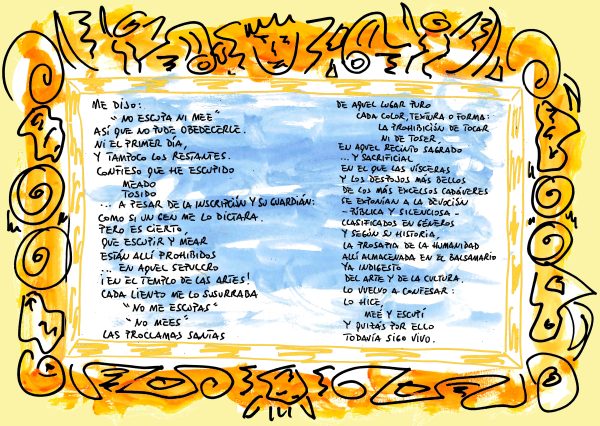 ME DIJO:
"NO ESCUPA NI MEE"
ASÍ QUE NO PUDE OBEDECERLE.
NI EL PRIMER DÍA,
Y TAMPOCO LOS RESTANTES.
CONFIESO QUE HE ESCUPIDO
MEADO
TOSIDO
... A PESAR DE LA INSCRIPCIÓN Y SU GUARDIÁN:
COMO SI UN GEN ME LO DICTARA.
PERO ES CIERTO,
QUE ESCUPIR Y MEAR
ESTÁN ALLÍ PROHIBIDOS
... EN AQUEL SEPULCRO
¡EN EL TEMPLO DE LAS ARTES!
CADA LIENZO ME LO SUSURRABA
"NO ME ESCUPAS"
"NO MEES"
LAS PROCLAMAS SANTAS
DE AQUEL LUGAR PURO
CADA COLOR, TEXTURA O FORMA:
LA PROHIBICIÓN DE TOCAR
NI DE TOSER,
EN AQUEL RECINTO SAGRADO
... Y SACRIFICIAL
EN EL QUE LAS VÍSCERAS
Y LOS DESPOJOS MÁS BELLOS
DE LOS MÁS EXCELSOS CADÁVERES
SE EXPONÍAN A LA DEVOCIÓN
- PÚBLICA Y SILENCIOSA -
CLASIFICADOS EN GÉNEROS
Y SEGÚN SU HISTORIA,
LA PROSAPIA DE LA HUMANIDAD
ALLÍ ALMACENADA EN EL BALSAMARIO
YA INDIGESTO
DEL ARTE Y DE LA CULTURA.
LO VUELVO A CONFESAR:
LO HICE,
MEÉ Y ESCUPÍ
Y QUIZÁS POR ELLO
TODAVÍA SIGO VIVO.